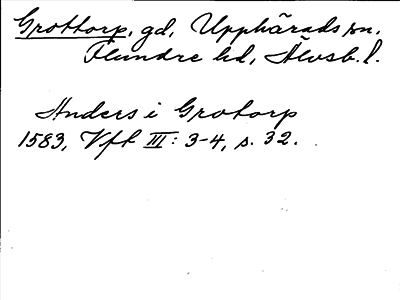 Grottorp, gd, Upphärads sn,
Flundre hd, Älvsb. l.
Anders i Grotorp
1583, Vft III: 3-4, s. 32.